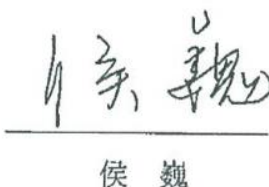 侯巍
侯 巍